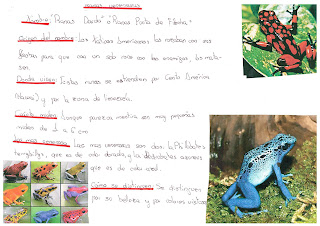 Nombre: "Ranas Dardo" o "Ranas Punta de Flecha."
Origen del nombre: Los nativos Americanos las usaban con sus
flechas para que con un solo roce con los enemigos, los mata-
sen.
Donde viven: Estas ranas se extienden por Centro América
(Hawai) y por la zona de Venezuela.
Cuanto miden: Aunque parezca mentira son muy pequeñas
miden de 1 a 6 cm
Las más venenosas son dos: La Phillobates
terribilis, que es de color dorada, y la dedrobates azureus
que es de color azul.
Cómo se distinguen: Se distinguen
por su belleza y por colores vistosos